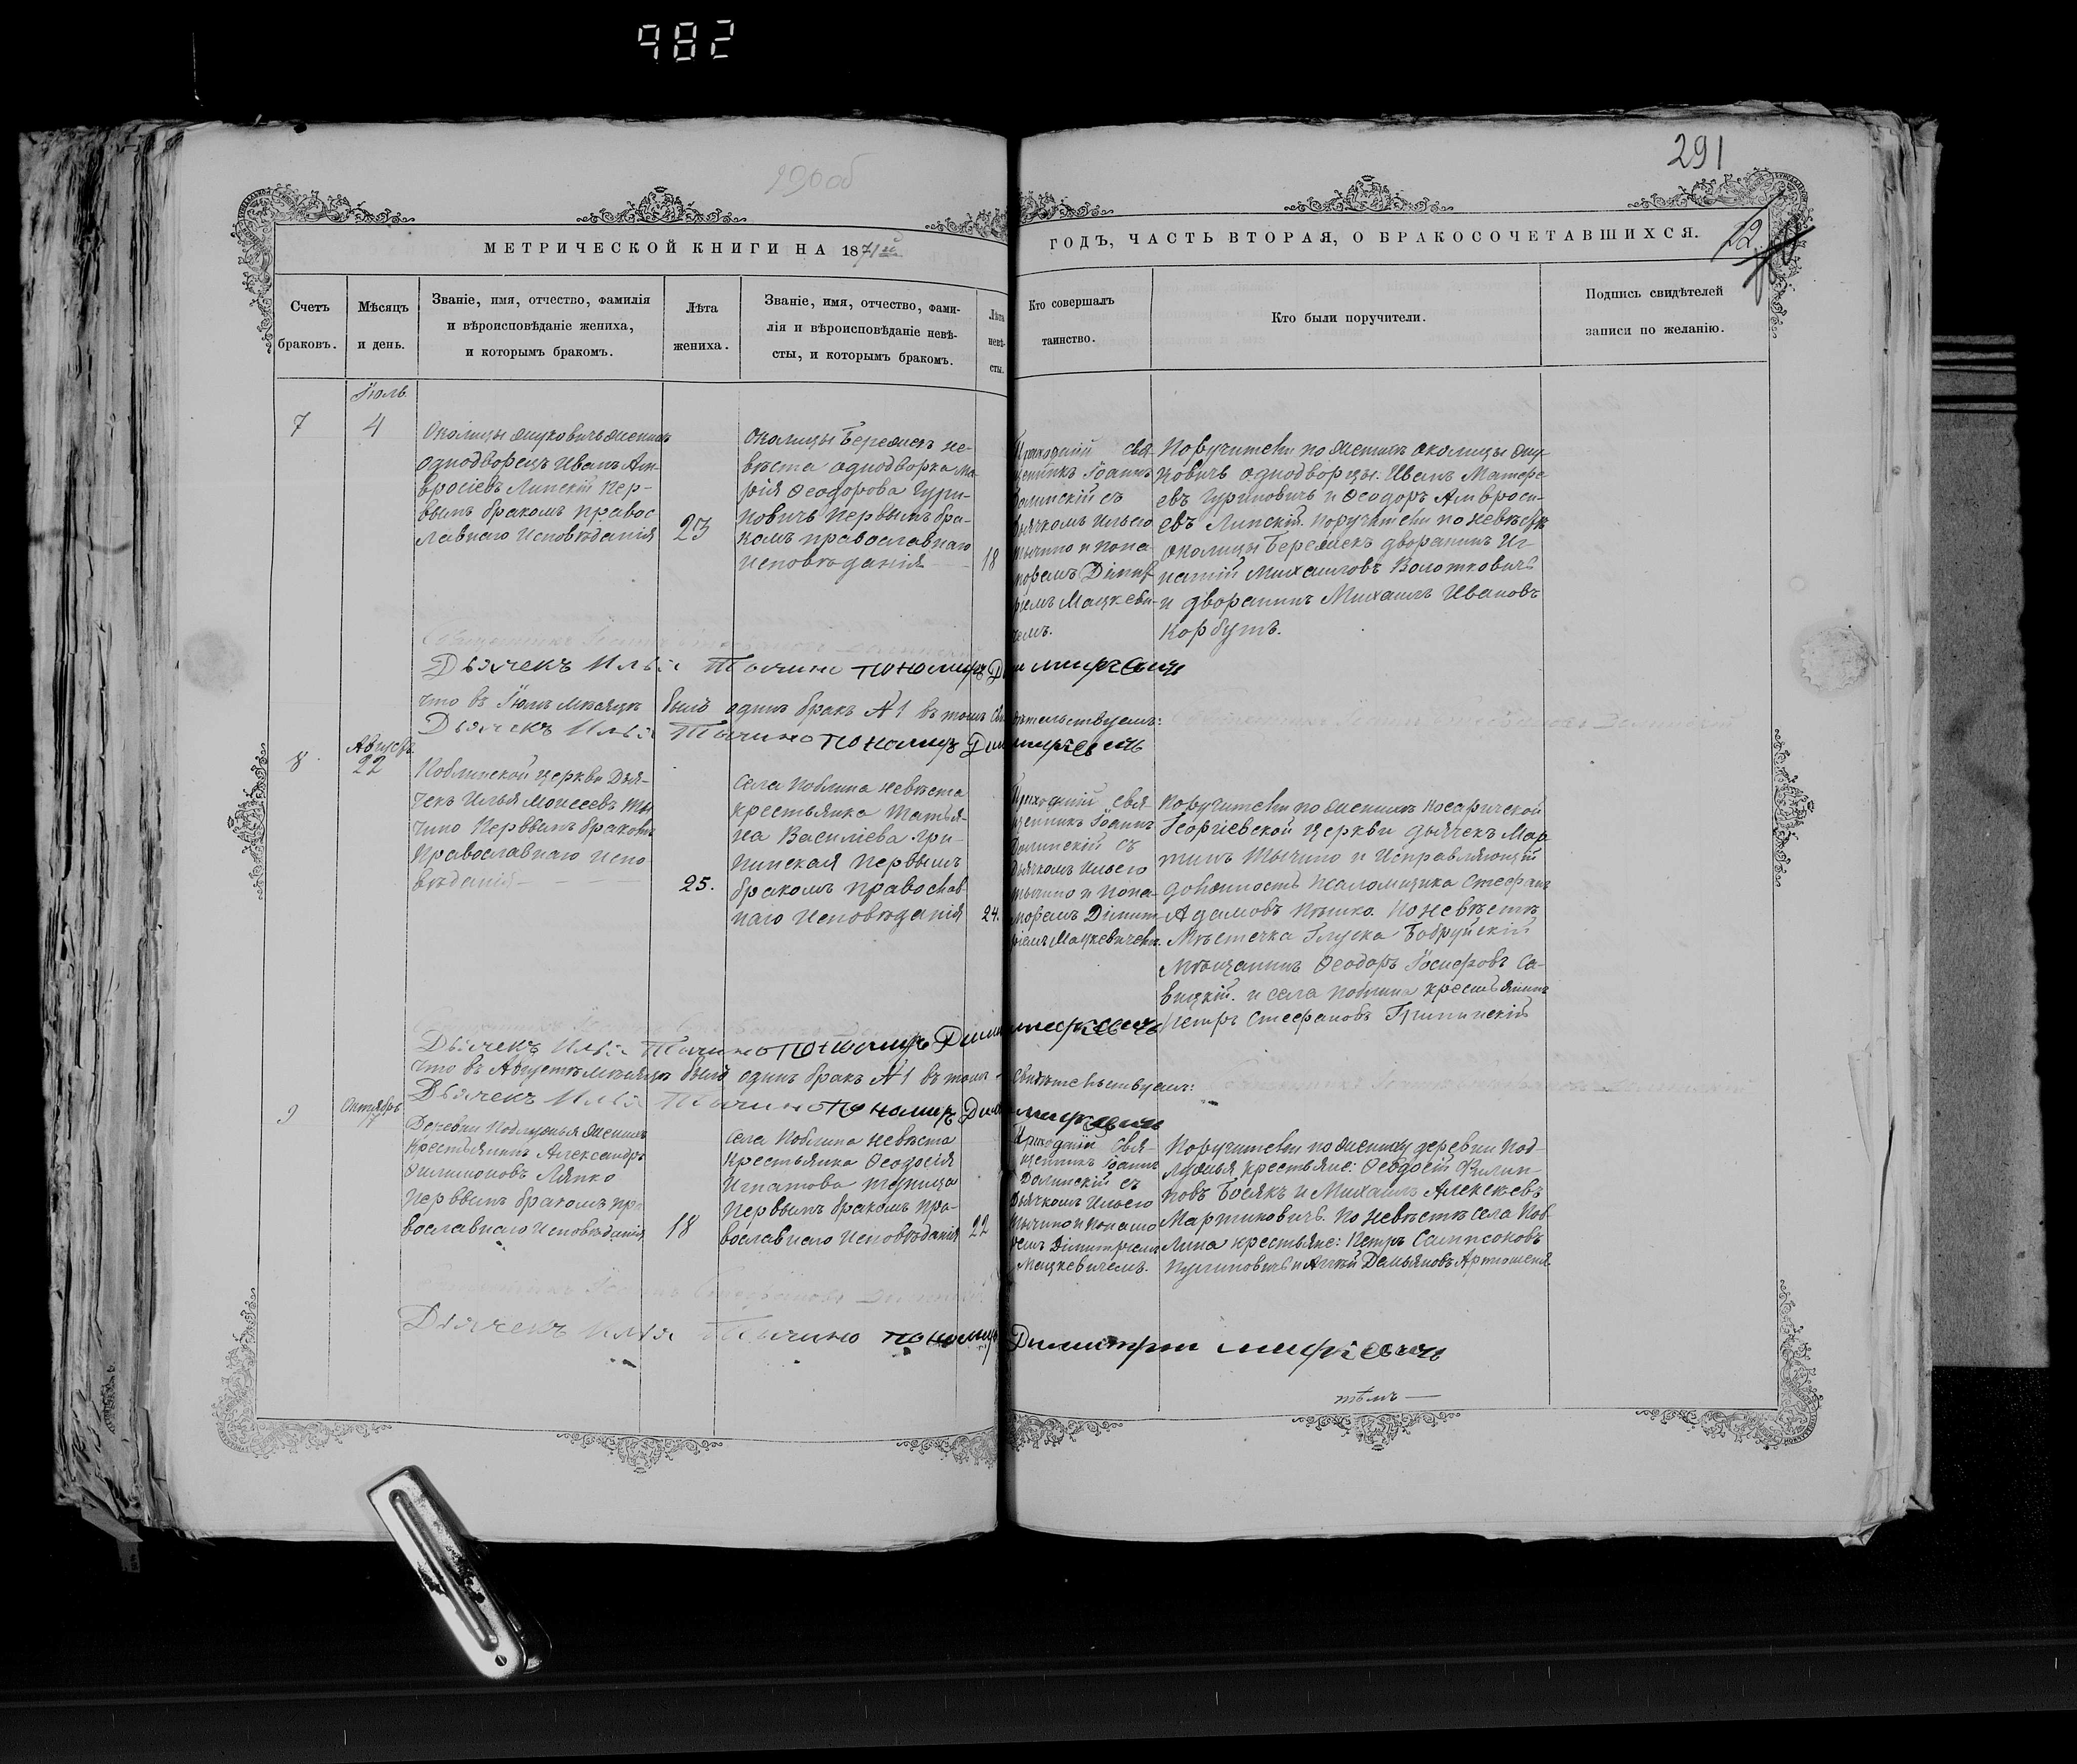 982
290об
291
МЕТРИЧЕСКОЙ КНИГИ НА 1871й
ГОДЪ, ЧАСТЬ ВТОРАЯ, О БРАКОСОЧЕТАВШИХСЯ.
12
Счетъ
браковъ.
Мѣсяцъ
и день.
Званіе, имя, отчество, фамилія
и вѣроисповѣданіе жениха,
и которымъ бракомъ.
Лѣта
жениха.
Званіе, имя, отчество, фами-
лія и вѣроисповѣданіе невѣ-
сты, и которымъ бракомъ.
Лѣта
невѣ-
сты.
Кто совершалъ
таинство.
Кто были поручители.
Подпись свидѣтелей
записи по желанію.
7
Іюль
4
Околицы женихъ
однодворецъ Иванъ Ам-
вросіевъ Липскій пер-
вымъ бракомъ правос
лавнаго исповѣданія
23
Околицы Бережекъ не-
вѣста однодворка Ма-
рія Ѳеодорова Гури-
новичъ первымъ бра-
комъ православнаго
исповѣданія
18
Приходскій свя-
щенникъ Іоаннъ
Далинскій съ
дьячкомъ Ильею
Тычино и поно-
моремъ Димит
ріемъ Мацкеви-
чемъ.
Поручители по женихѣ околицы
однодворцы: Иванъ Матѳе-
евъ Гуриновичъ и Ѳеодоръ Амвроси-
евъ Липскій. поручители по невѣстѣ
околицы Бережекъ дворянинъ Иг-
натій Михаиловъ Волотковичъ
и дворянинъ Михаилъ Ивановъ
Корбутъ.
Дьячекъ Илья Тычино пономарь
что въ Іюлѣ мѣсяцѣ былъ одинъ бракъ №1 въ томъ свидѣтельствуемъ:
Дьячекъ Илья Тычино пономарь
8
Августъ
22
Коблинской церкви Дья-
чекъ Илья Моисеевъ Ты
чино первымъ бракомъ
православнаго испо
вѣданія
25.
Села Поблина невѣста
крестьянка Татья-
на Василіева Гри-
пинская первымъ
бракомъ православ
наго исповѣданія
24.
Приходскій свя-
щенникъ Іоаннъ
Далинскій съ
дьячкомъ Ильею
Тычино и поно-
моремъ Димит-
ріемъ Мацкевичемъ.
Поручители по женихѣ Косаричской
Георгіевской церкви дьячекъ Мар
тинъ Тычино и исправляющій
должность псаломщика Стефанъ
Адамовъ По невѣстѣ
Мѣстечка Глуска Бобруйскій
мѣщанинъ Ѳеодоръ Іосифовъ Са-
вицкій. и села Поблина крестьянинъ
Петръ Стефановъ Грипинскій
Дьячекъ Илья Тычино пономарь
что въ Августѣ мѣсяцѣ былъ одинъ бракъ №1 въ томъ свидѣтельствуемъ:
Дьячекъ Илья Тычино пономарь
9
Октябрь
17
Деревни Подлужья женихъ
крестьянинъ Александръ
Филимоновъ Ляпко
первымъ бракомъ пра
вославнаго исповѣданія
18
Села Поблина невѣста
крестьянка Ѳеодосія
Игнатова
первымъ бракомъ пра-
вославнаго исповѣданія
22
Приходскій свя-
щенникъ Іоаннъ
Далинскій съ
дьячкомъ Ильею
Тычино и понамо
ремъ Димитріемъ
Мацкевичемъ.
Поручители по жениху деревни Под-
лужья крестьяне: Ѳеодосій Филип-
повъ Босякъ и Михаилъ Алексѣевъ
Мартиновичъ. По невѣстѣ села Поб
лина крестьяне: Петръ Сампсоновъ
и Демьяновъ
Дьячекъ Илья Тычино пономарь Димитрій
тѣмъ